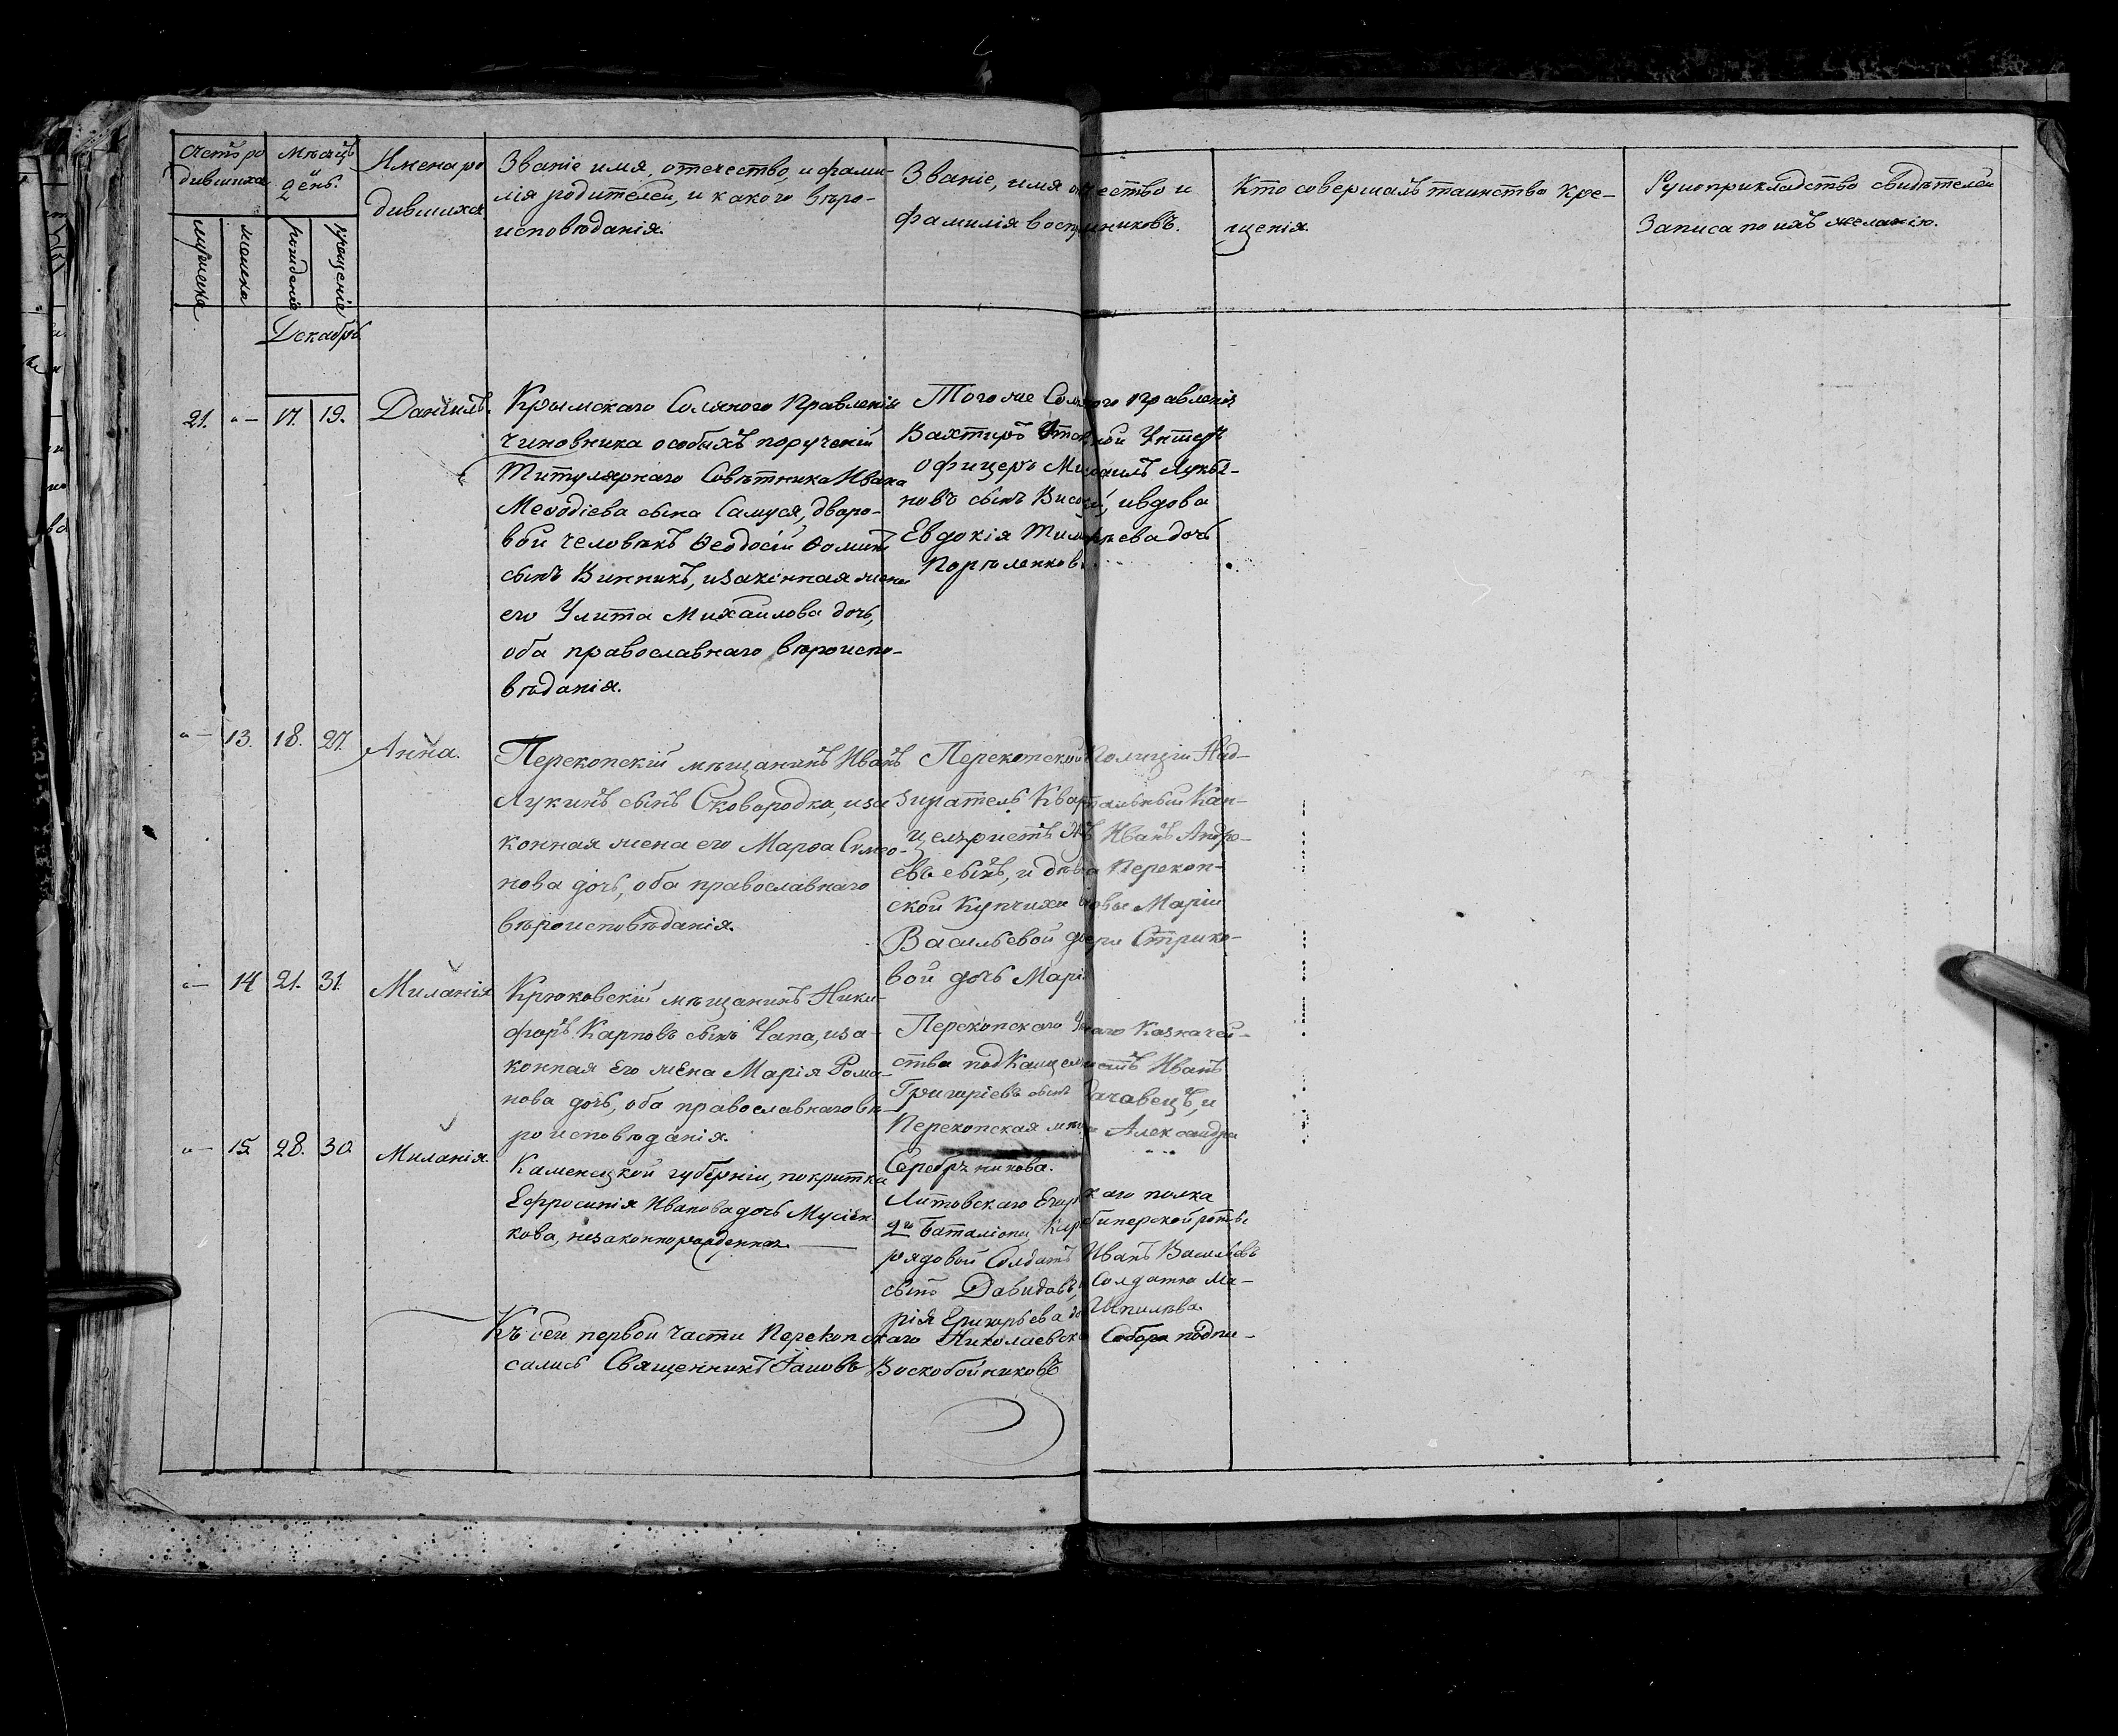 Счетъ ро
дившихся
Мѣсяцъ
день.
мужеска
женска
рожденіе
крещеніе
Имена ро
дившихся
Званіе имя, отечество, и фами-
лія родителей, и какого вѣро-
исповѣданія.
Званіе, имя отчество и
фамилія воспріемниковъ.
Кто совершалъ таинство кре-
щенія.
Рукоприкладство свидѣтелей
Записа по ихъ желанію.
Декабрь
21. "— 17. 19. Даніилъ.
Крымскаго Соляного Правленія
чиновника особыхъ порученій
Титулярнаго Совѣтника Ивана
Меѳодіева сына Самуся, дворо-
вой человѣкъ Ѳеодосій Ѳоминъ
сынъ Винникъ, изаконная жена
его Улита Михаилова дочь,
оба православнаго вѣроиспо-
вѣданія.
Того же Соляного правленія
Вахтиръ Унтеръ
офицеръ Михаилъ Лукья-
новъ сынъ ивдова
Евдокія дочь
"— 13. 18. 27. Анна.
Перекопскій мѣщанинъ Иванъ
Лукинъ сынъ Сковородка, иза
конная жена его Марѳа Симео-
нова дочь, оба православнаго
вѣроисповѣданія.
Перекопской Полиціи Над-
зиратель Квартальный Кан-
целяристъ Иванъ Андре-
евъ сынъ, и Перекоп-
ской Купчихи вдовы Маріи
Васильевой дочери Стрико-
вой дочь Марія
"— 14 21. 31. Миланія
Крюковскій мѣщанинъ Ники-
форъ Карповъ сынъ Чапа, иза-
конная его жена Марія Рома-
нова дочь, оба православнаго вѣ-
роисповѣданія.
Перекопскаго Казначей-
ства подКанцеляристъ Иванъ
Григоріевъ сынъ и
Перекопская Александра
Серебрѣникова.
"— 15. 28. 30. Миланія.
Каменецкой губерніи, покритка
Ефросинія Иванова дочь Мусіен-
кова, незаконнорожденная.
Литовскаго Егерскаго полка
2го Баталіона, Карабинерской роты
рядовой Солдатъ Иванъ Васильевъ
сынъ Давидовъ, Солдатка Ма-
рія Григорьева Шпилева.
Къ сей первой части Перекопскаго Николаевскаго Собора подпи-
сались Священникъ Іаковъ Воскобойниковъ